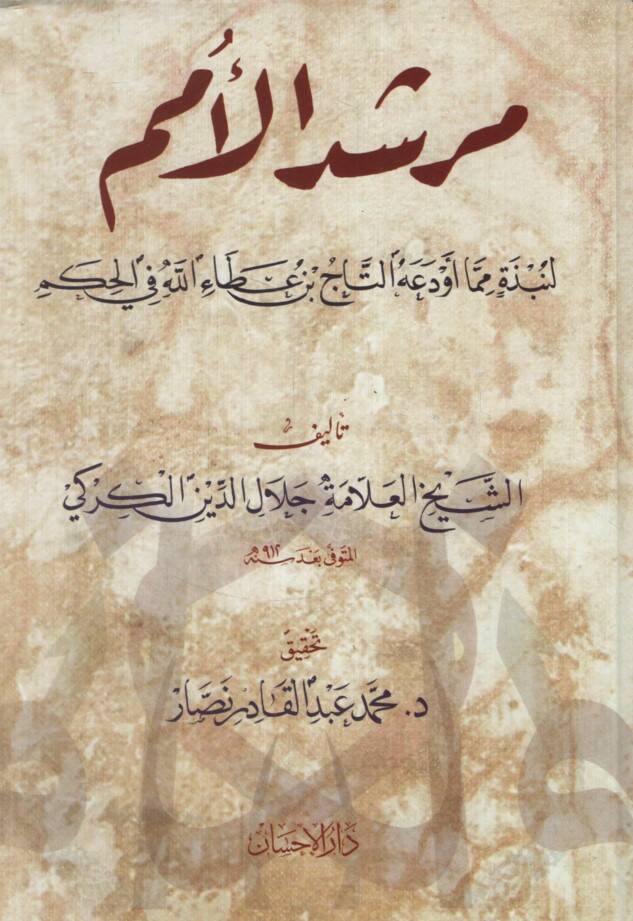 مرشد الأُمم
لنُبْذَةٍ مِمَّا أَوْدَعَهُ التَّاجُ بْنُ عَطَاءِ اللَّهِ فِي الحِكَمِ
تأليف
الشَّيْخِ العَلَّامَةِ جَلَالِ الدِّيْنِ الْكَرَكِي
المتَوَفَّى بَعْدَ سَنَة ٩١٢هـ
تحقِيْق
د. محمَّد عَبْد القَادِر نَصَّار
دَارُ الإحْسَان